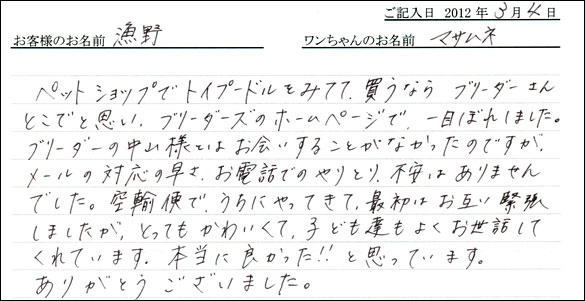 ご記入日 2012 年 3 月 4 日
お客様のお名前 漁野 ワンちゃんのお名前 マサムネ
ペットショップでトイプードルをみてて、買うなら ブリーダーさん
とこでと思い、ブリーダーズのホームページで、一目ぼれしました。
ブリーダーの中山様とはお会いすることがなかったのですが、
メールの対応の早さ、お電話でのやりとり、不安はありません
でした。空輸便で、うちにやってきて、最初はお互い緊張
しましたが、とってもかわいくて、子ども達もよくお世話して
くれています。本当に良かった!! と思っています。
ありがとうございました。